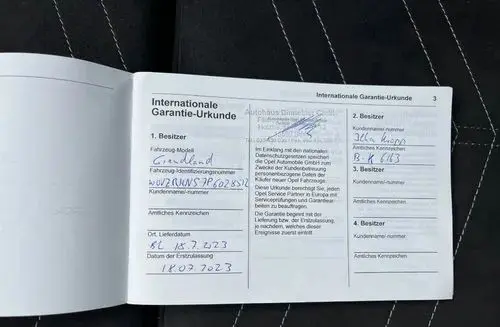 Internationale Garantie-Urkunde 3
Internationale
Garantie-Urkunde
1. Besitzer
Fahrzeug-Modell
Grandland
Fahrzeug-Identifizierungsnummer
Kundenname/-nummer
Amtliches Kennzeichen
Ort, Lieferdatum
BL 18.7.2023
Datum der Erstzulassung
18.07.2023
Autohaus
Im Einklang mit den nationalen
Datenschutzgesetzen speichert
die Opel Automobile GmbH zum
Zwecke der Kundenbetreuung
personenbezogene Daten der
Käufer neuer Opel Fahrzeuge.
Diese Urkunde berechtigt Sie, jeden
Opel Service Partner in Europa mit
Serviceprüfungen und Garantiear-
beiten zu beauftragen.
Die Garantie beginnt mit der
Lieferung bzw. der Erstzulassung,
je nachdem, welches dieser
Ereignisse zuerst eintritt.
2. Besitzer
Kundenname/-nummer
Amtliches Kennzeichen
3. Besitzer
Kundenname/-nummer
Amtliches Kennzeichen
4. Besitzer
Kundenname/-nummer
Amtliches Kennzeichen